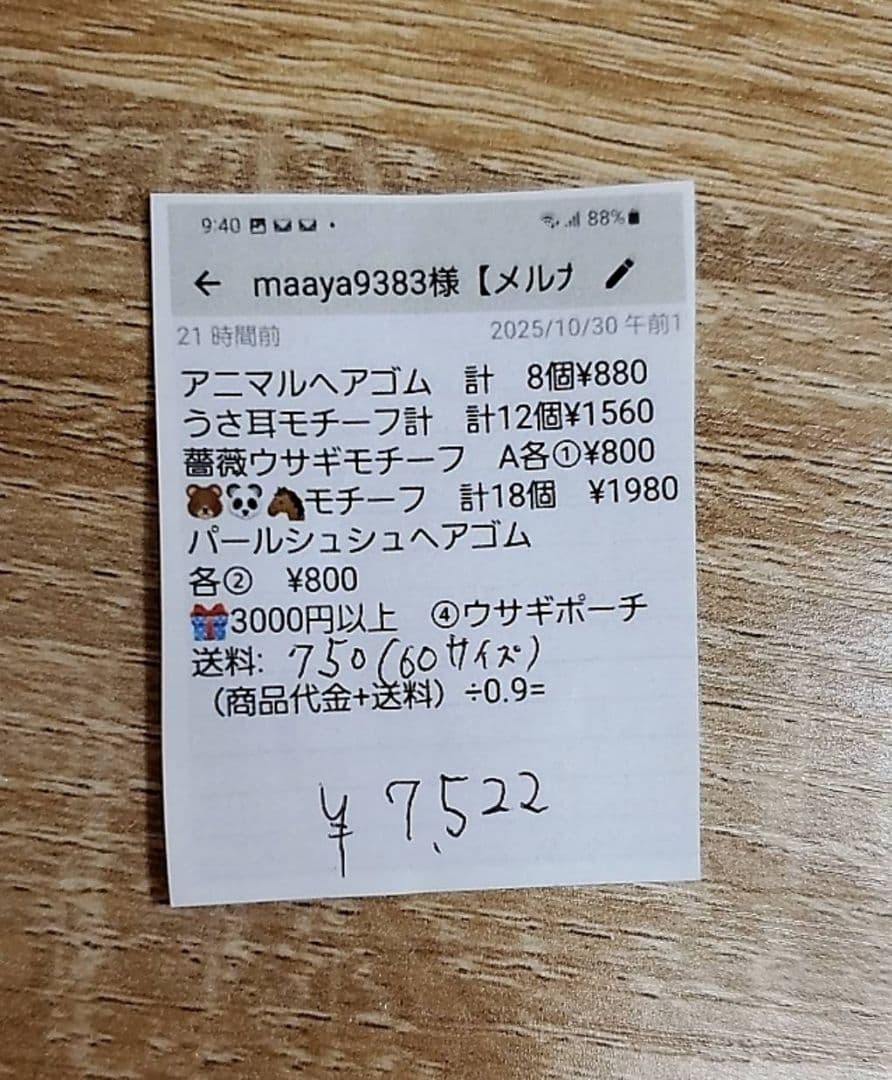 9:40 88%
← maaya9383様【メルカ
21 時間前 2025/10/30 午前1
アニマルヘアゴム 計 8個¥880
うさ耳モチーフ計 計12個¥1560
薔薇ウサギモチーフ A各①¥800
🐻🐼🐴モチーフ 計18個 ¥1980
パールシュシュヘアゴム
各② ¥800
🎁3000円以上 ④ウサギポーチ
送料: 750(60サイズ)
(商品代金+送料) ÷0.9=
¥7,522